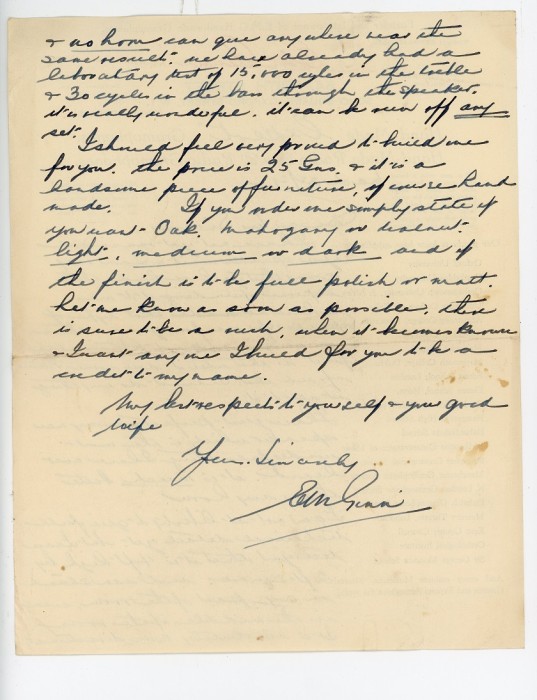 & no horn can give anywhere near the
same result. we have already had a
laboratory test of 15,000 cycles in the treble
& 30 cycles in the bass through the speaker.
it is really wonderful. it can be run off any
set.
I should feel very proud to build one
for you. the price is 25 Gns. & it is a
handsome piece of furniture, of course hand
made. If you order one simply state if
you want Oak, Mahogany or walnut.
light, medium or dark and if
the finish is to be full polish or matt.
Let me know as soon as possible, there
is sure to be a rush, when it becomes known
& I want any one I build for you to be a
credit to my name.
My best respects to yourself & your good
wife
Yours Sincerely